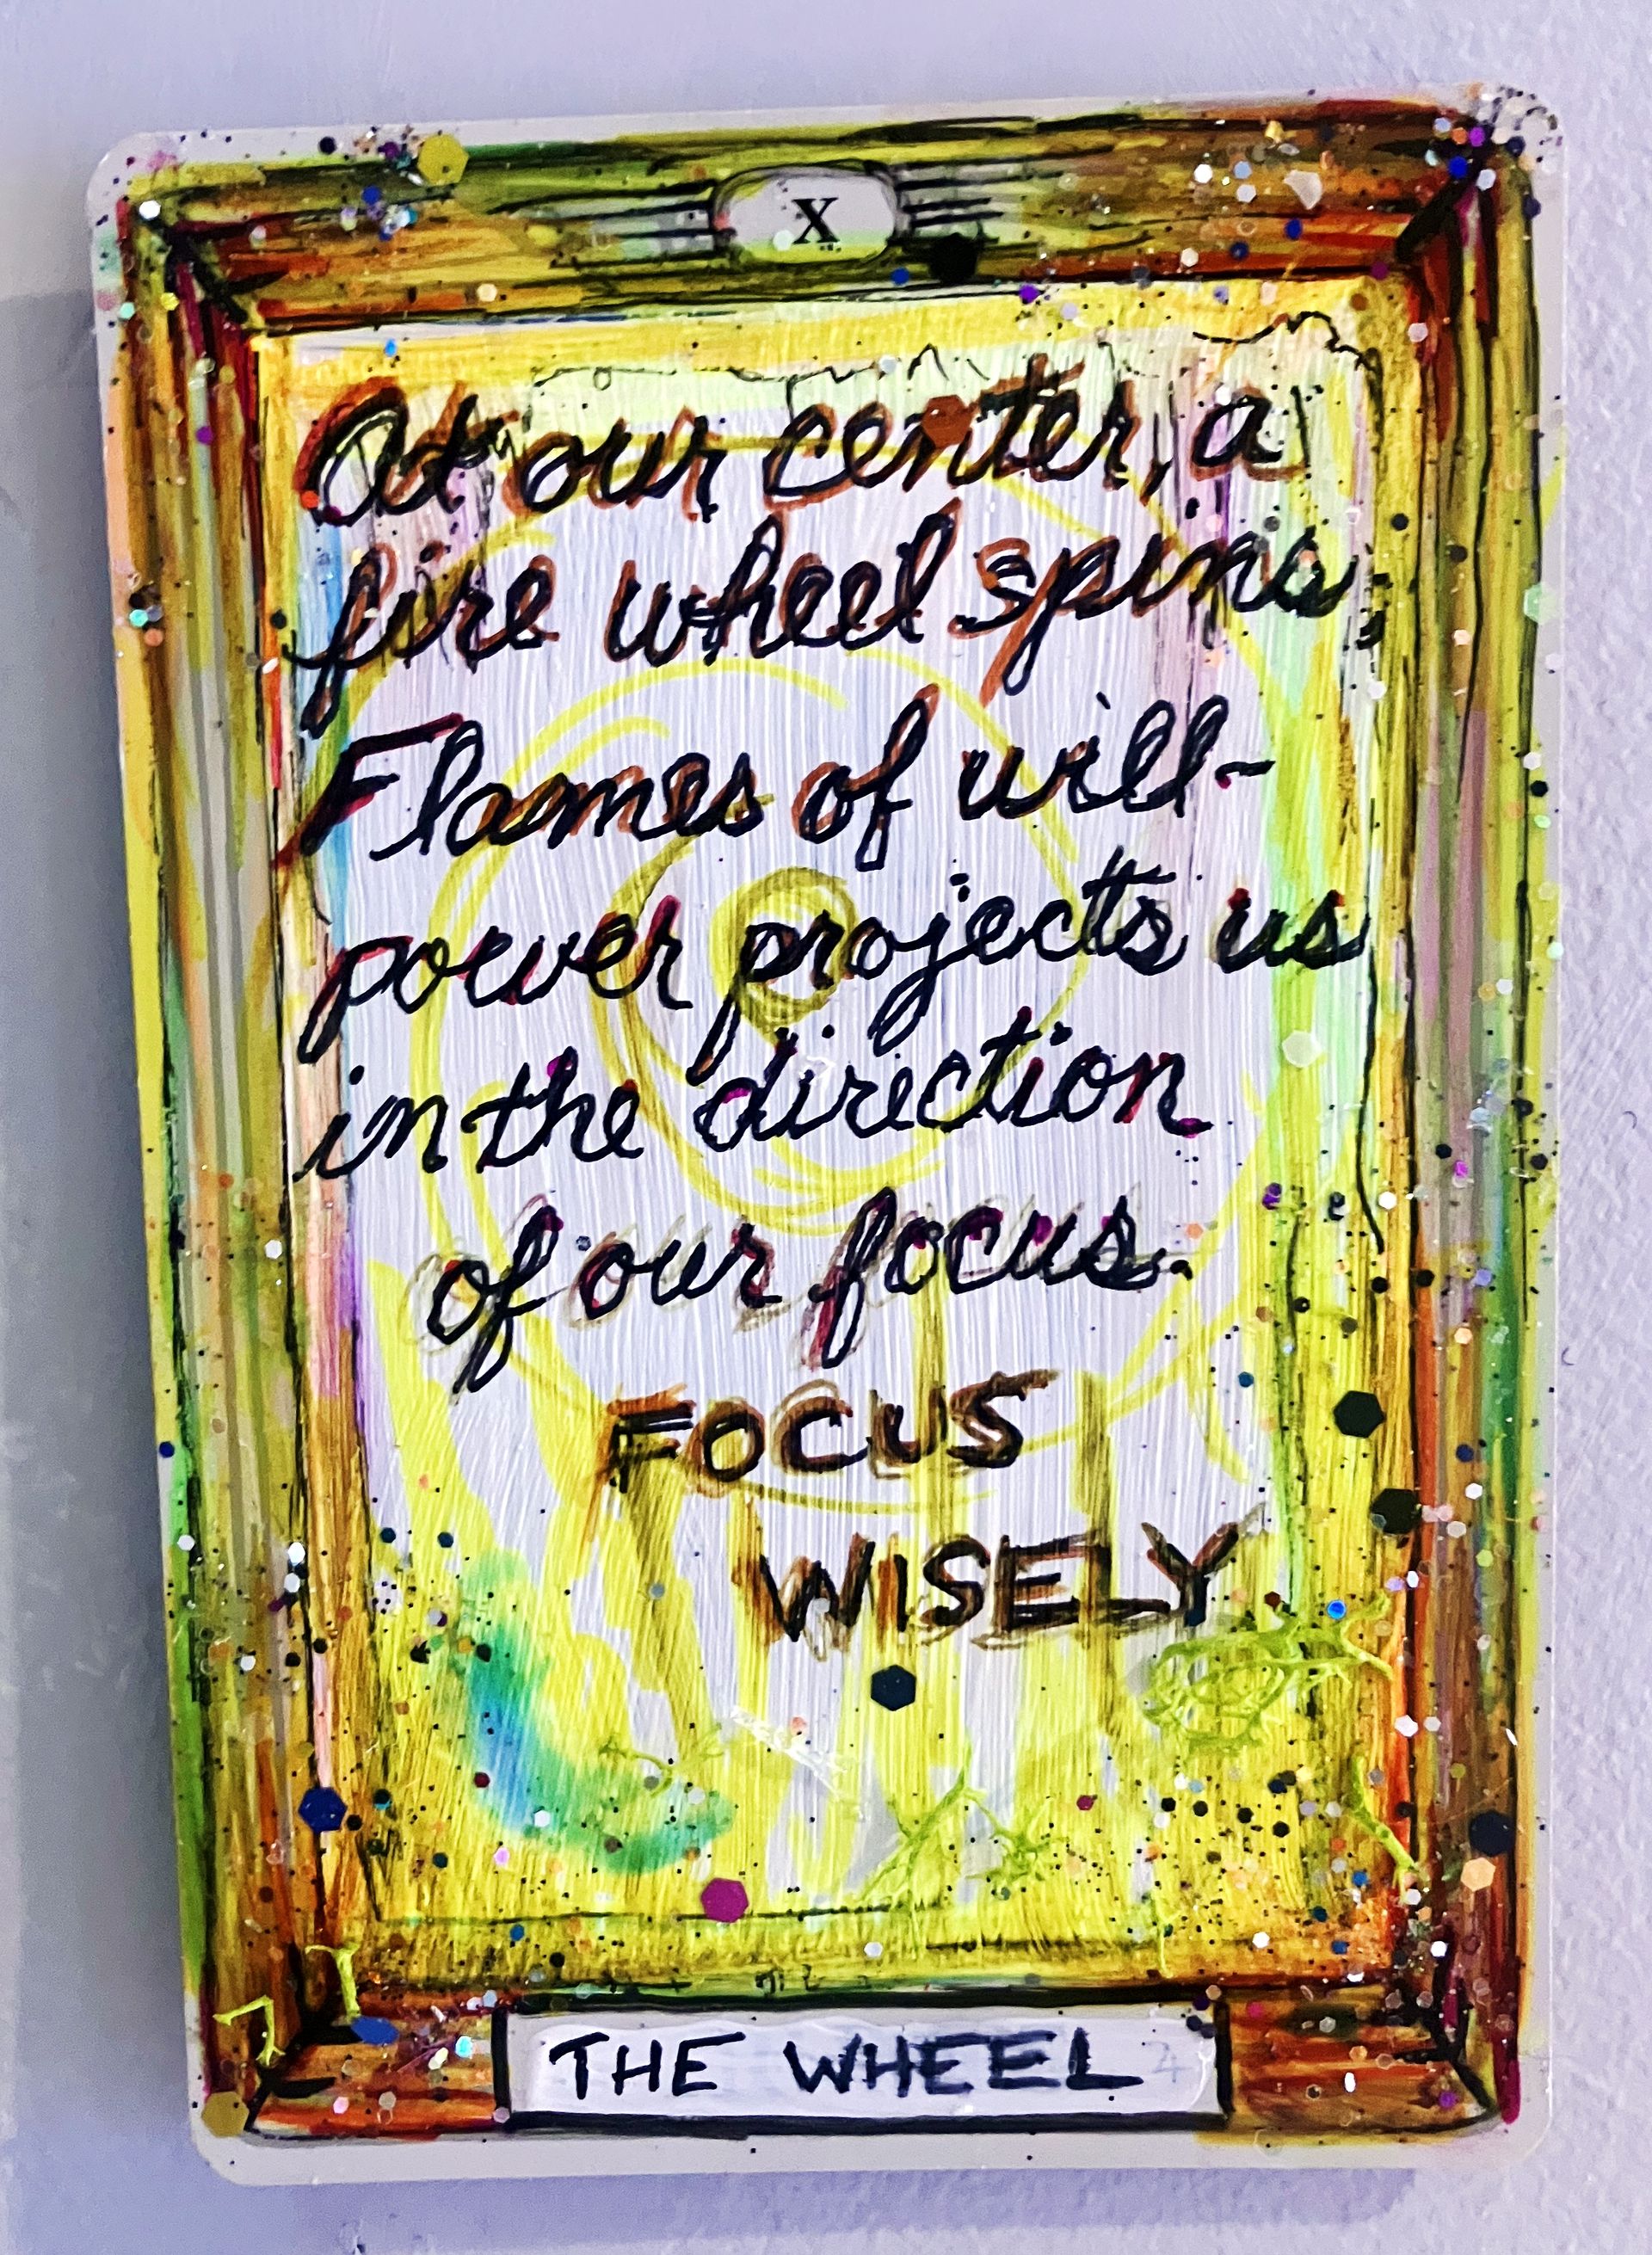 X
At our center, a
fire wheel spins;
Flames of will-
power projects us
in the direction
of our focus.
FOCUS
WISELY
THE WHEEL